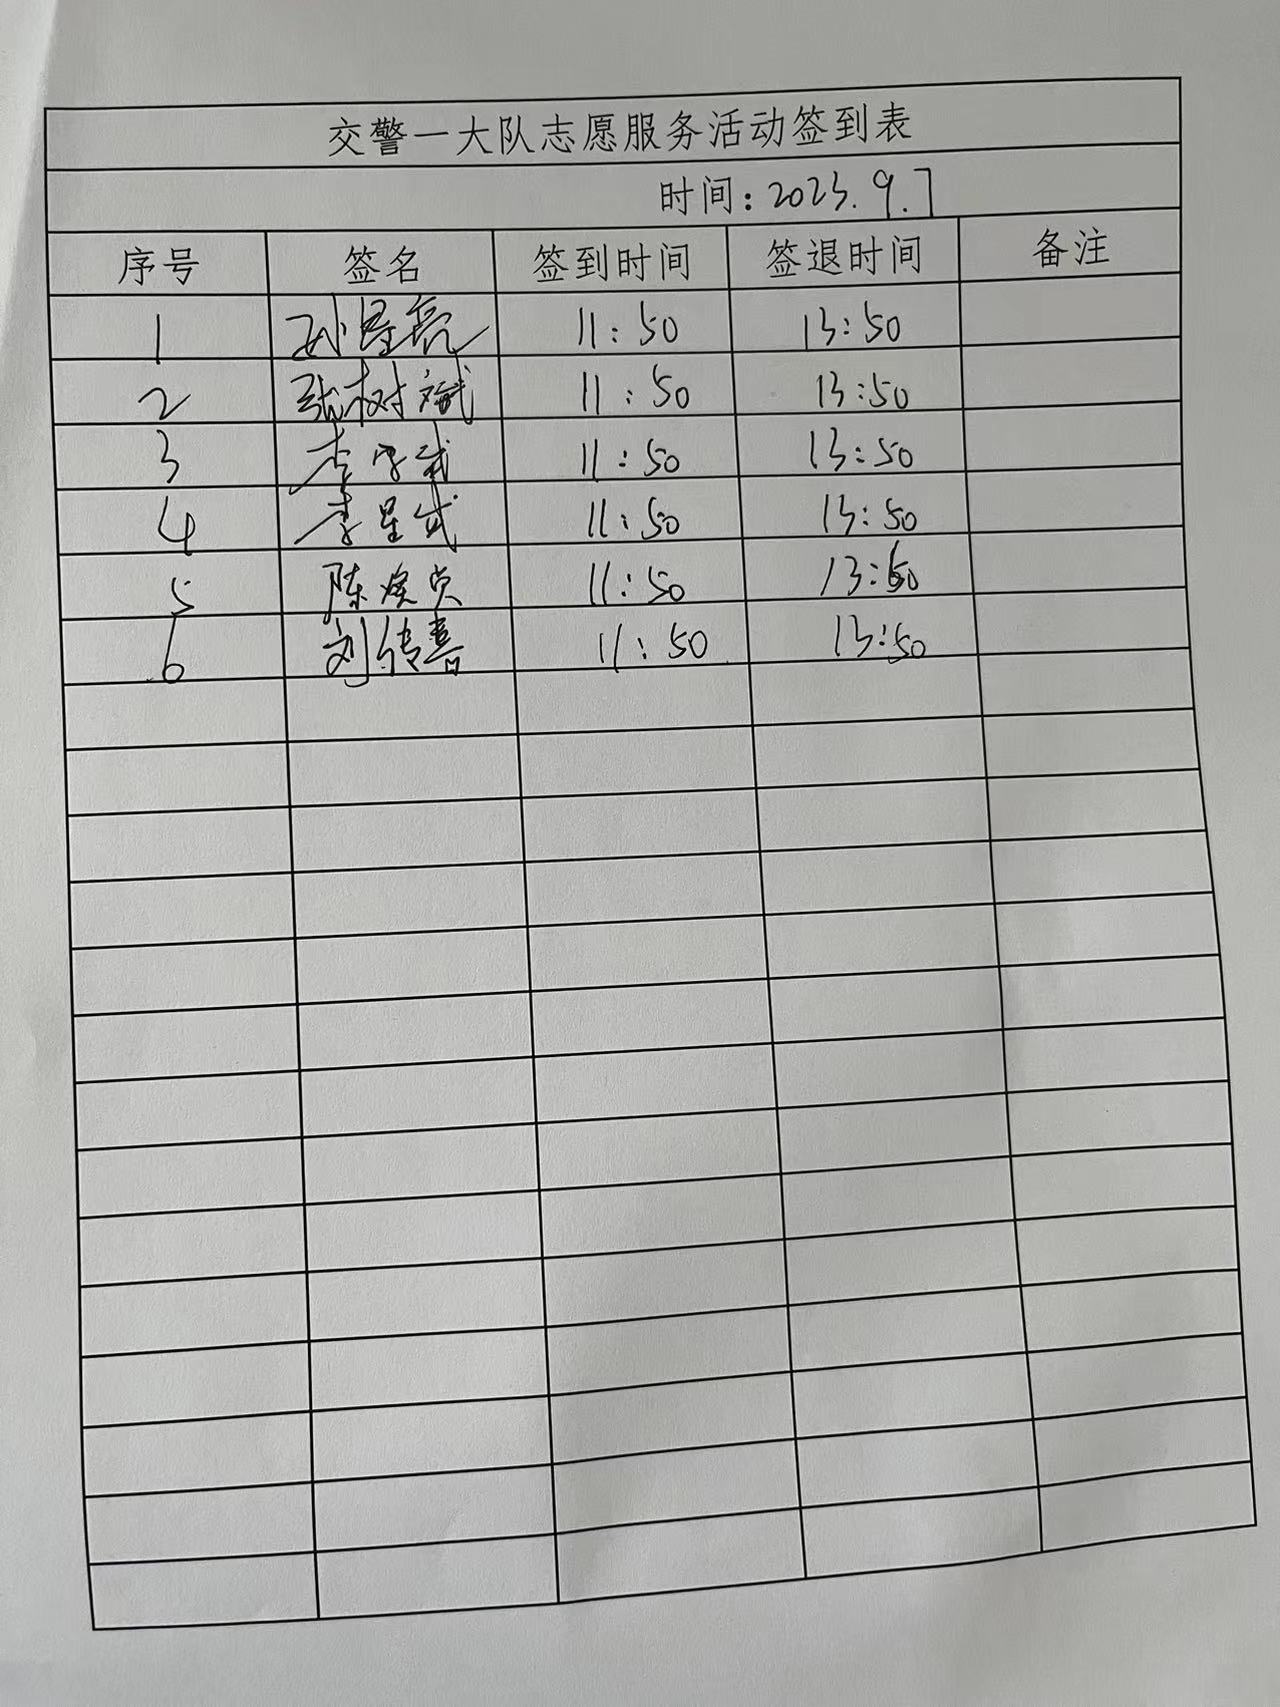 交警一大队志愿服务活动签到表
时间：2023.9.7
序号 签名 签到时间 签退时间 备注
1 孙星亮 11:50 13:50
2 张树斌 11:50 13:50
3 李 11:50 13:50
4 李星 11:50 13:50
5 陈 11:50 13:50
6 刘传喜 11:50 13:50